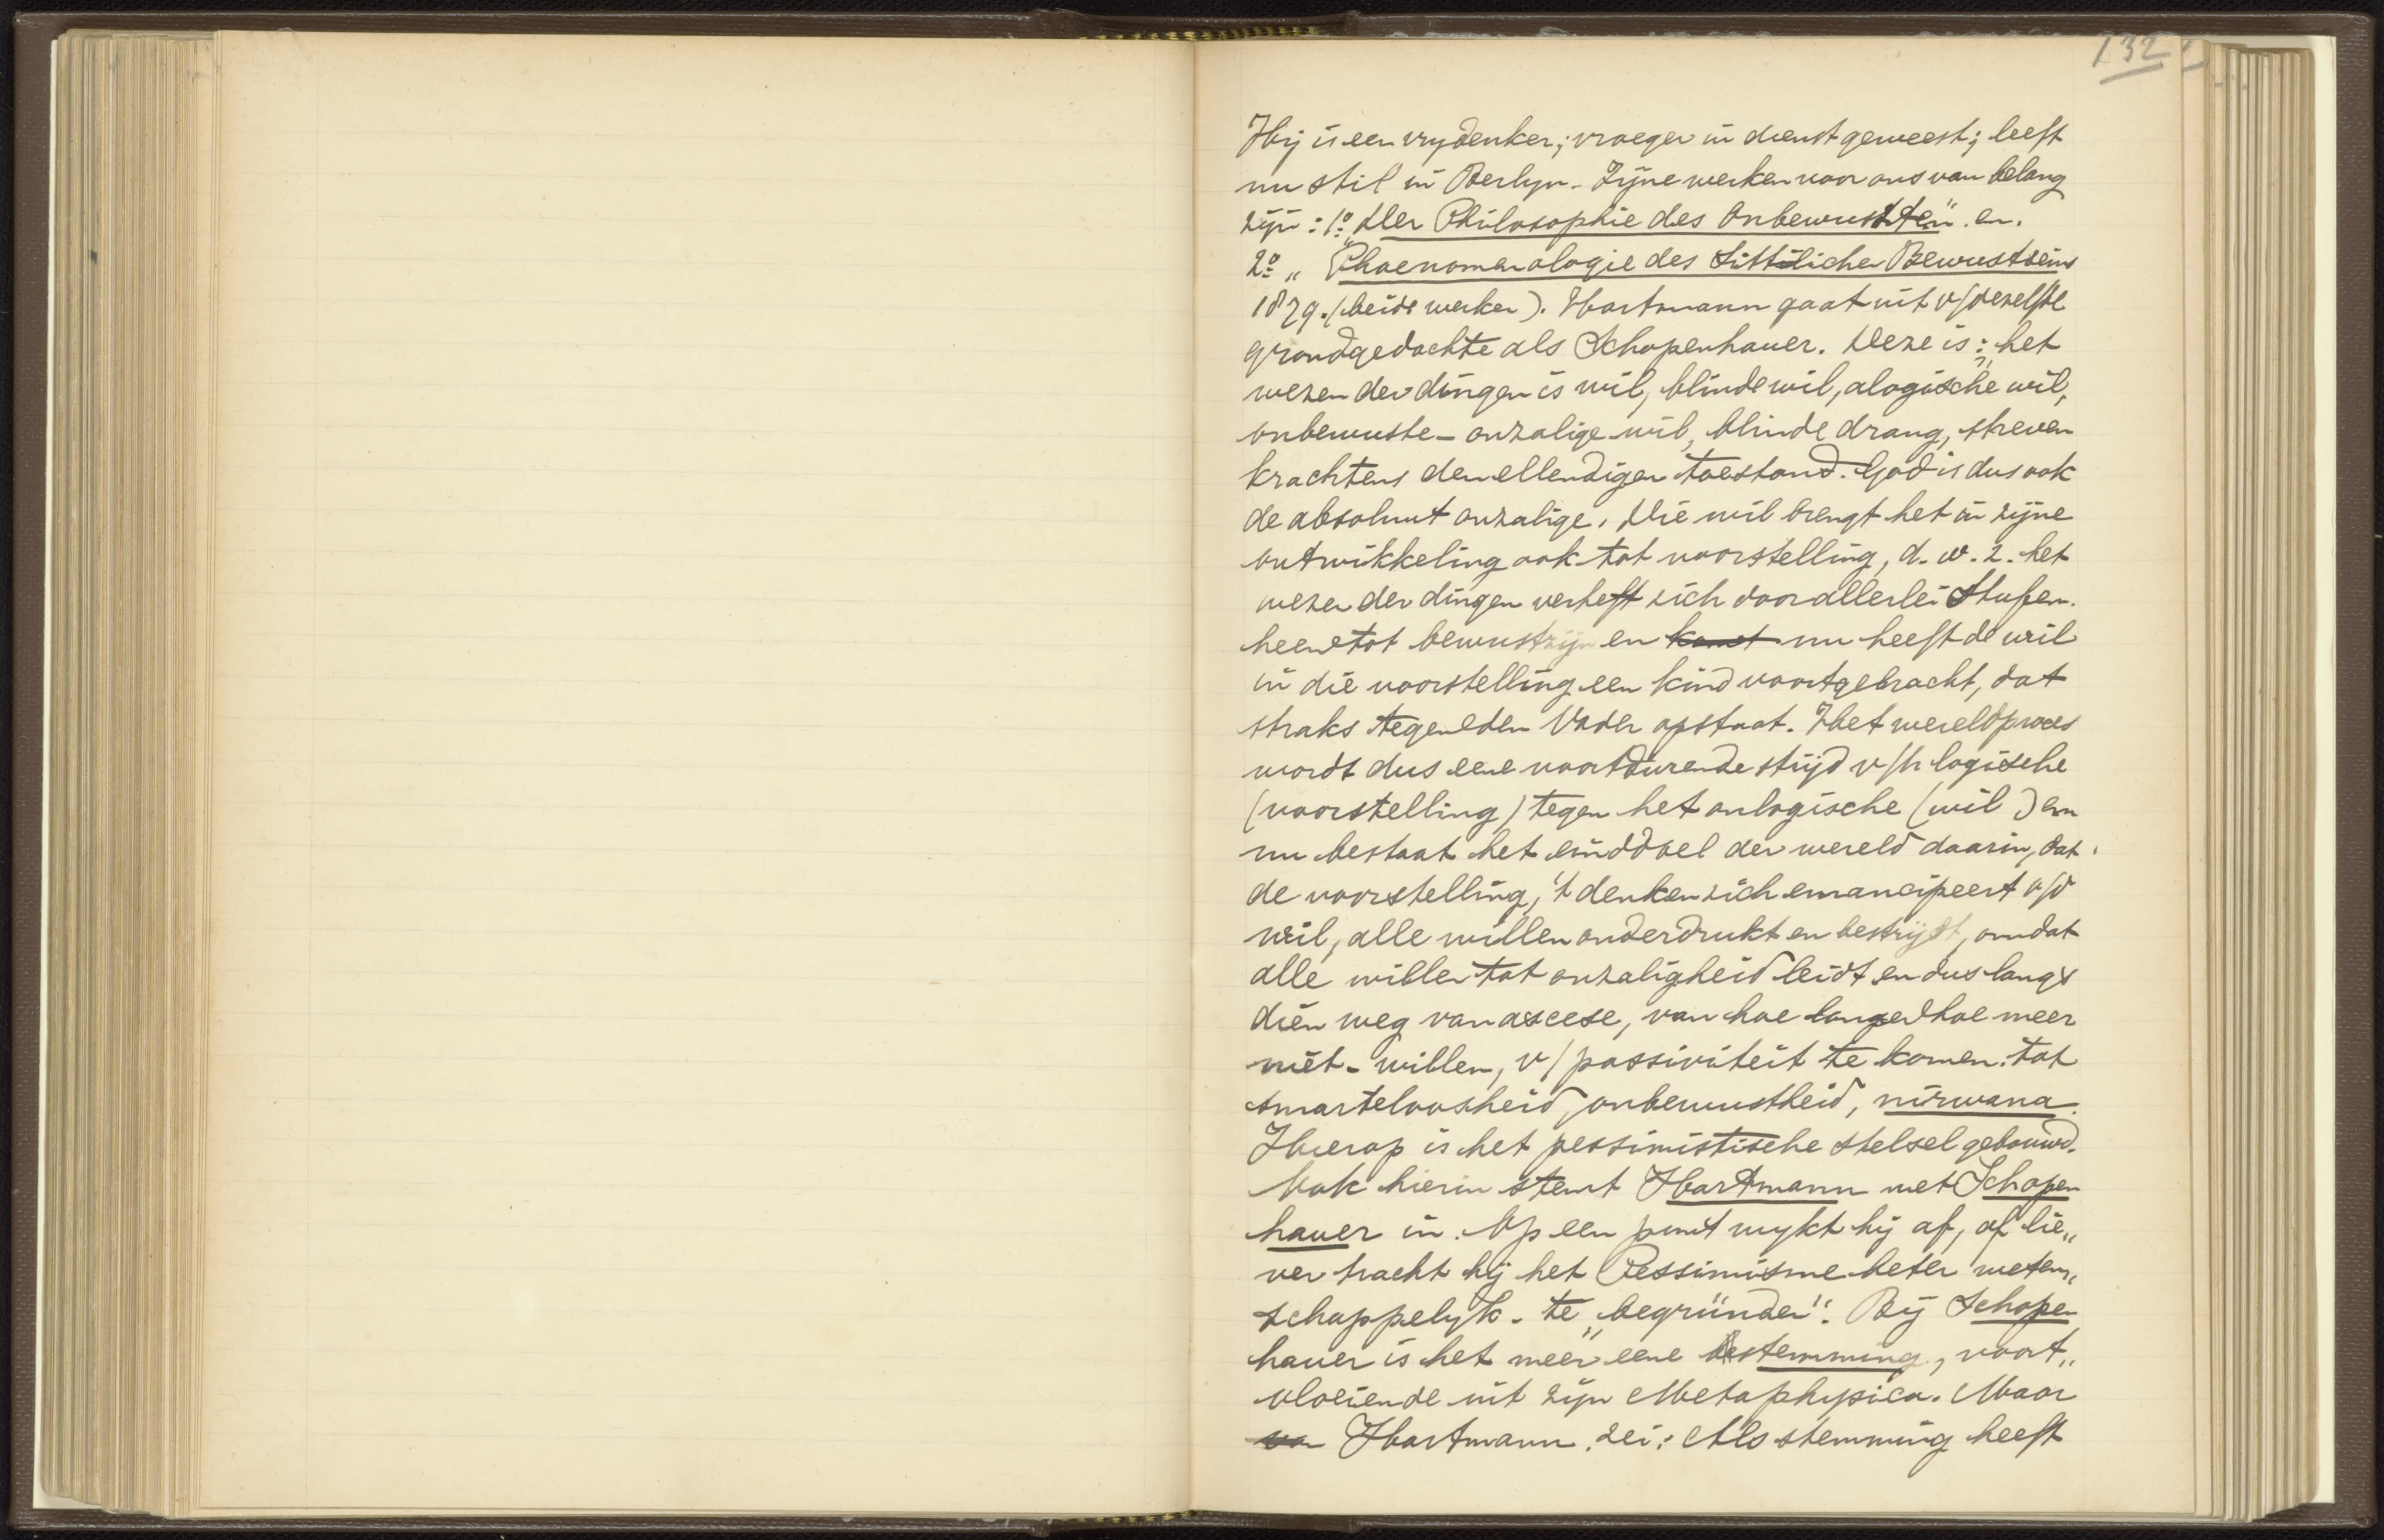 132
Hij is een vrydenker; vroeger in dienst geweest; leeft
nu stil in Berlyn. Zijne werken voor ons van belang
zijn: 1º „Der Philosophie des Onbewussten" en.
2º „Phaenomenologie des Sittlichen Bewustseins
1879. (beide werken). Hartmann gaat uit v/dezelfde
grondgedachte als Schopenhauer. Deze is: „het
wezen der dingen is wil, blinde wil, alogische wil,
onbewuste - onzalige wil, blinde drang, streven
krachtens den ellendigen toestand. God is dus ook
de absoluut onzalige. Die wil brengt het in zijne
ontwikkeling ook tot voorstelling, d. w. z. het
wezen der dingen verheft zich door allerlei Stufen.
heen tot bewustzijn en komt nu heeft de wil
in die voorstelling een kind voortgebracht, dat
straks tegen den Vader opstaat. Het wereldproces
wordt dus eene voortdurende strijd v/h logische
(voorstelling) tegen het onlogische (wil) en
nu bestaat het einddoel der wereld daarin, dat
de voorstelling, 't denken zich emancipeert v/d
wil, alle willen onderdrukt en bestrijdt, omdat
alle willen tot onzaligheid leidt en dus langs
dien weg van ascese, van hoe langer hoe meer
niet-willen, v/passiviteit te komen tot
smarteloosheid, onbewustheid, nirwana.
Hierop is het pessimistische stelsel gebouwd.
Ook hierin stemt Hartmann met Schopen
hauer in. Op een punt wykt hij af, of lie„
ver tracht hij het Pessimisme beter weten„
schappelyk - te „begründen". Bij Schopen
hauer is het meer eene stemming, voort„
vloeiende uit zijn Metaphysica. Maar
von Hartmann zei: Als stemming heeft